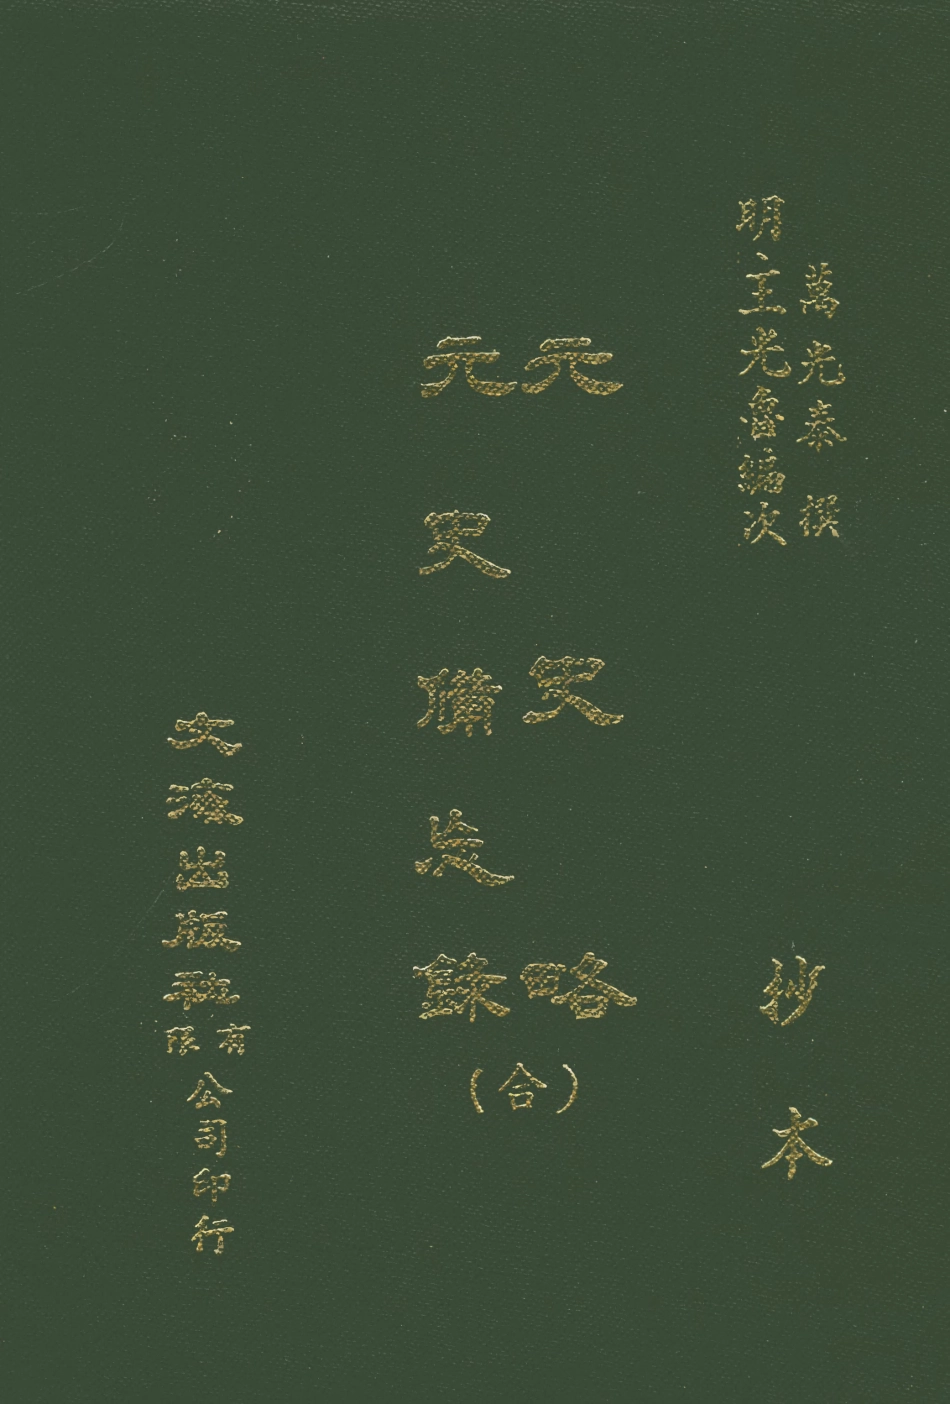 萬光泰 撰
明主光魯編次
抄本
元史略
元史備忘錄
（合）
文海出版社有限公司印行